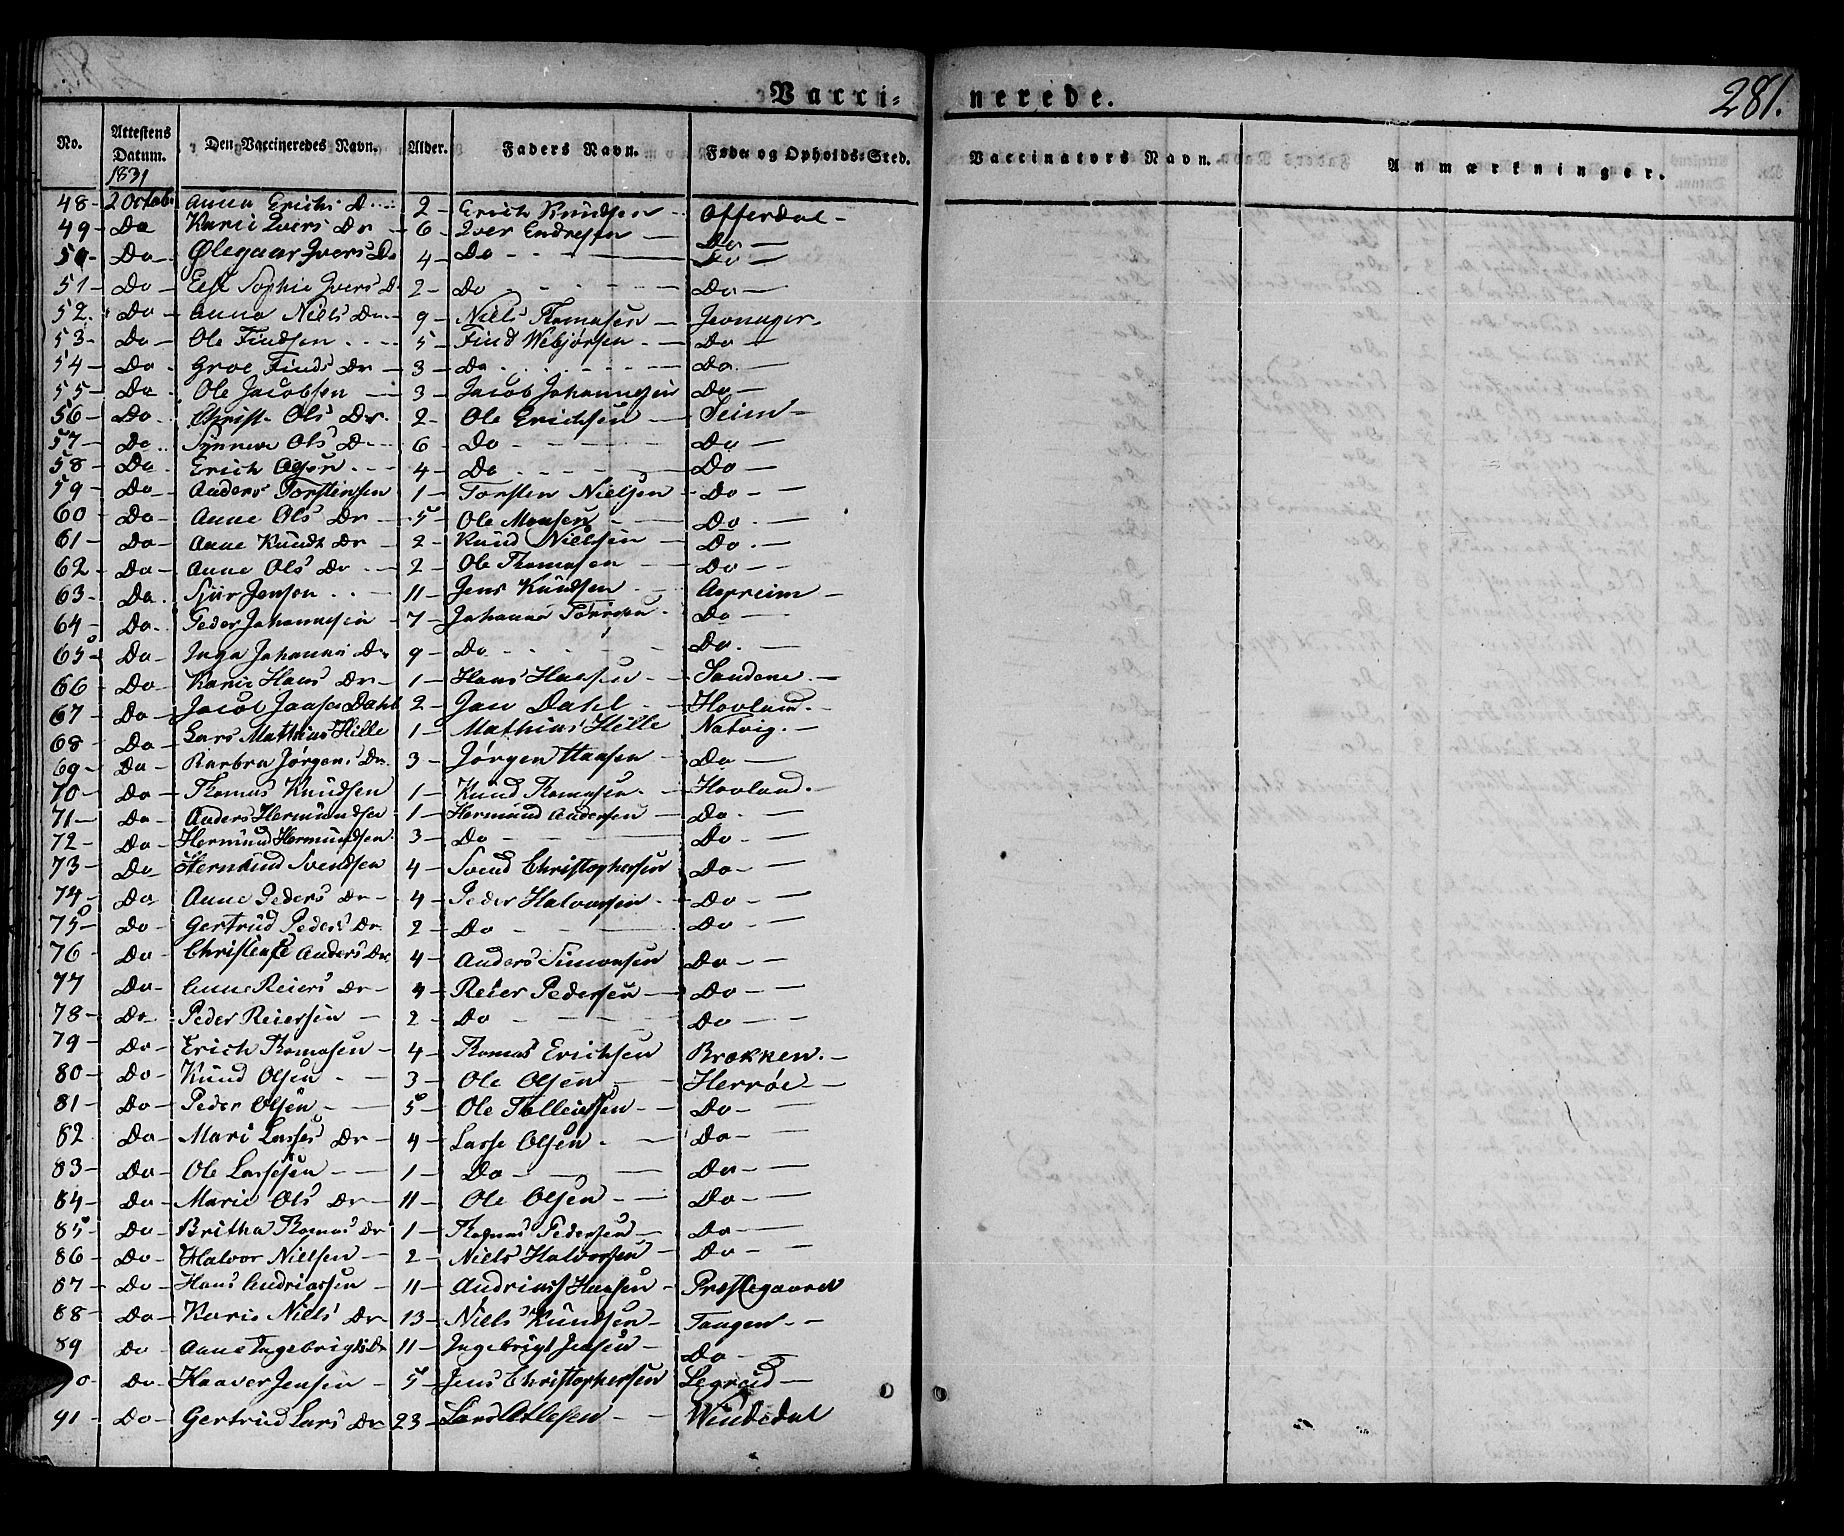 Vacci= nerede. 281.
No. Attestens Datum. Den Vaccineredes Navn. Alder. Faders Navn. Føde og Opholds=Sted. Vaccinators Navn. Anmærkninger.
1831
48 - 2 Octob. Anna Erichs D. 2 - Erich Knudsen - Offerdal -
49 - Do Karie Ivers Dr - 6 - Iver Endresen - Do -
50 - Do - Ølegaar Ivers Dr 4 - Do - - Do -
51 - Do - Else Sophie Ivers D. 2 - Do - - Do -
52. Do - Anna Niels Dr. - 9 - Niels Thomasen - Jevnager -
53 - Do - Ole Findsen - 5 - Find Webjørsen - Do -
54 - Do - Groe Finds Dr - 3 - Do - - Do. -
55 - Do. Ole Jacobsen - 3 - Jacob Johannesen Do -
56 - Do. Christi Ols Dr. 2 - Ole Erichsen - Seim -
57 - Do. Synneve Ols D. 6 - Do - - Do -
58 - Do. Erich Olsen - 4 - Do - - Do -
59 - Do - Anders Torstensen 1 - Torsten Nielsen - Do - -
60 Do - Anne Ols Dr - 5 - Ole Monsen - Do. -
61 - Do - Anne Knuds Dr - 2 - Knud Nielsen - Do. -
62 - Do - Anne Ols Dr - 2 - Ole Thomasen - Do - -
63 - Do. Siur Jensen - 11 - Jens Knudsen - Asperheim -
64 - Do - Peder Johannesen - 7 - Do -
65 - Do - Inga Johannes Dr 9 - Do - - Do. -
66 - Do - Karie Hans Dr - 1 - Hans Hansen - Sandene. -
67 - Do - Jacob Dahl 2 - Jan Dahl - Hovland. -
68 - Do - Lars Mathias Hille 1 - Mathias Hille Natvig. -
69 - Do - Barbra Jørgens Dr. 3 - Jørgen Haasen - Do -
70 - Do - Thomas Knudsen 1 - Knud Thomasen - Hovland. -
71 - Do - Anders Hermundsen 1 - Hermund Andersen - Do. -
72 - Do - Hermund Hermundsen 3 - Do - - Do - -
73 - Do - Hermund Svendsen 4 - Svend Christophersen Do - -
74 - Do - Anne Peders Dr - 4 - Peder Halvorsen - Do - -
75 - Do - Gertrud Peders Dr. 2 - Do - - Do - -
76 - Do - Christense Anders Dr. 4 - Anders Simonsen Do - -
77 Do - Anne Reiers Dr - 4 - Reier Pedersen - Do - -
78 - Do - Peder Reiersen - 2 - Do - - Do - -
79 - Do - Erich Thomasen - 4 - Thomas Erichsen Brækken. -
80 - Do - Knud Olsen - 3 - Ole Olsen - Herrøe -
81 - Do - Peder Olsen - 5 - Ole Tolleivsen - Do - -
82 Do - Mari Lasses Dr - 4 - Lasse Olsen - Do - -
83 - Do - Ole Lassesen - 1 - Do - - Do - -
84 - Do - Marie Ols Dr - 11 - Ole Olsen - Do - -
85 - Do - Britha Thomas Dr 1 - Thomas Pedersen - Do - -
86 - Do - Halvor Nielsen - 2 - Niels Halvorsen - Do - -
87 - Do - Hans Andriassen - 11 - Andrias Hansen - Præstegaard
88 - Do - Karie Niels Dr - 13 - Niels Knudsen - Tangen. -
89 - Do - Anne Ingebrigts Dr 11 - Ingebrigt Jensen - Do - -
90 - Do - Haaver Jensen - 5 - Jens Christophersen Legreid -
91 - Do - Gertrud Lars Dr 23 - Lars Atlesen - Windedal